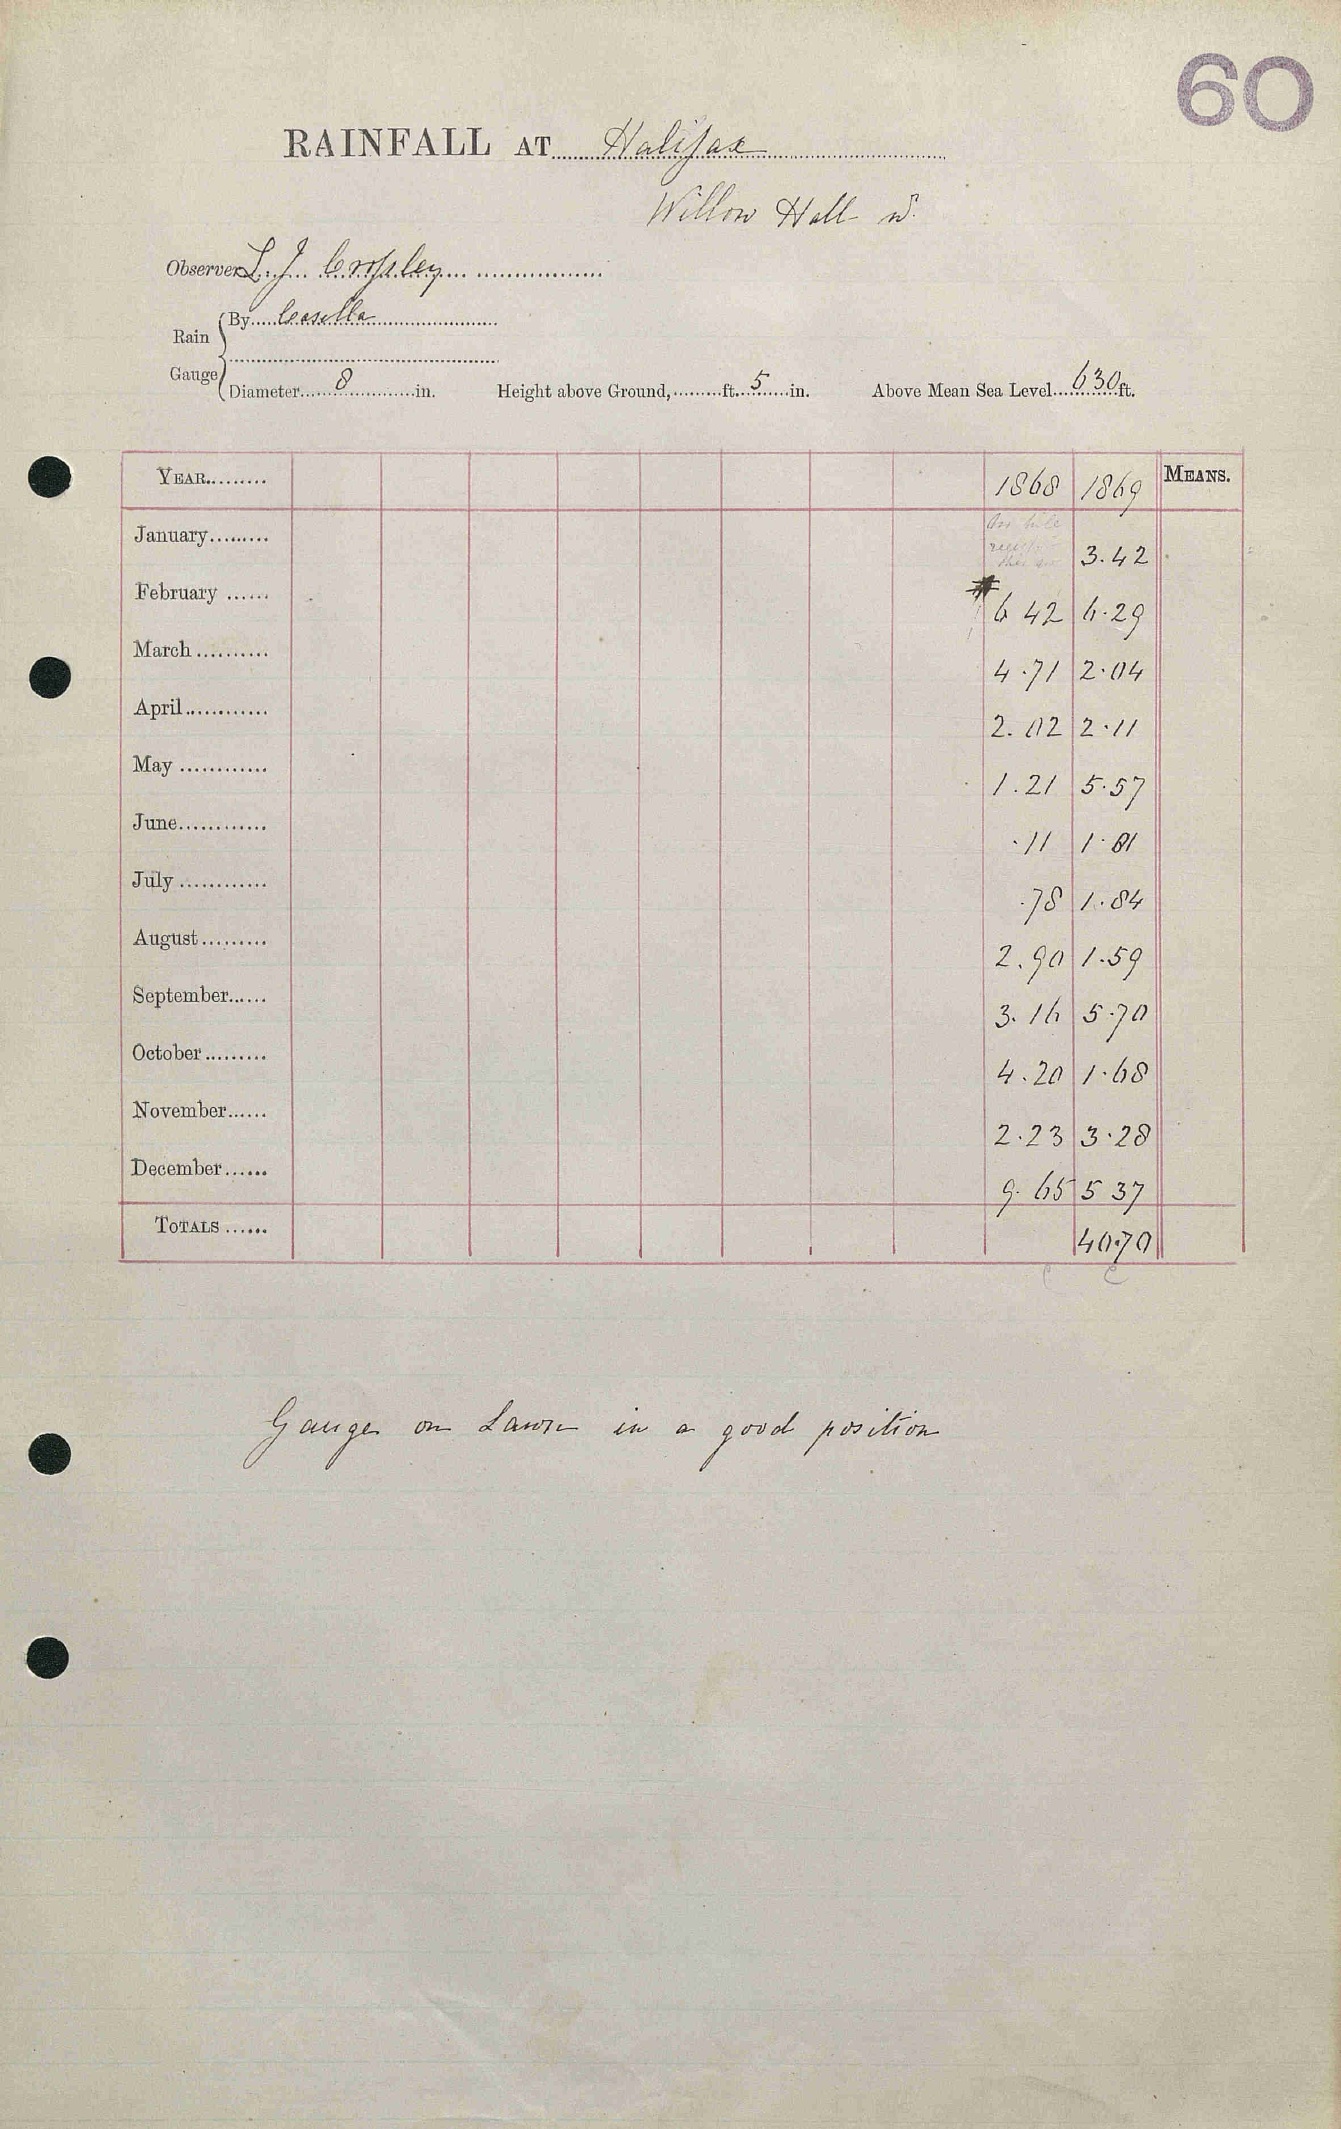 60
RAINFALL AT Halifax
Willow Hall
Observer L. J. Crossley
Rain Gauge
By Casella
Diameter 8 in. Height above Ground, ft. 5 in. Above Mean Sea Level 630 ft.
YEAR 1868 1869 MEANS.
January 3.42
February 6 42 6.29
March 4.71 2.04
April 2.02 2.11
May 1.21 5.57
June .11 1.81
July .78 1.84
August 2.90 1.59
September 3.16 5.70
October 4.20 1.68
November 2.23 3.28
December 9.65 5 37
TOTALS 40.70
Gauge on Lawn in a good position